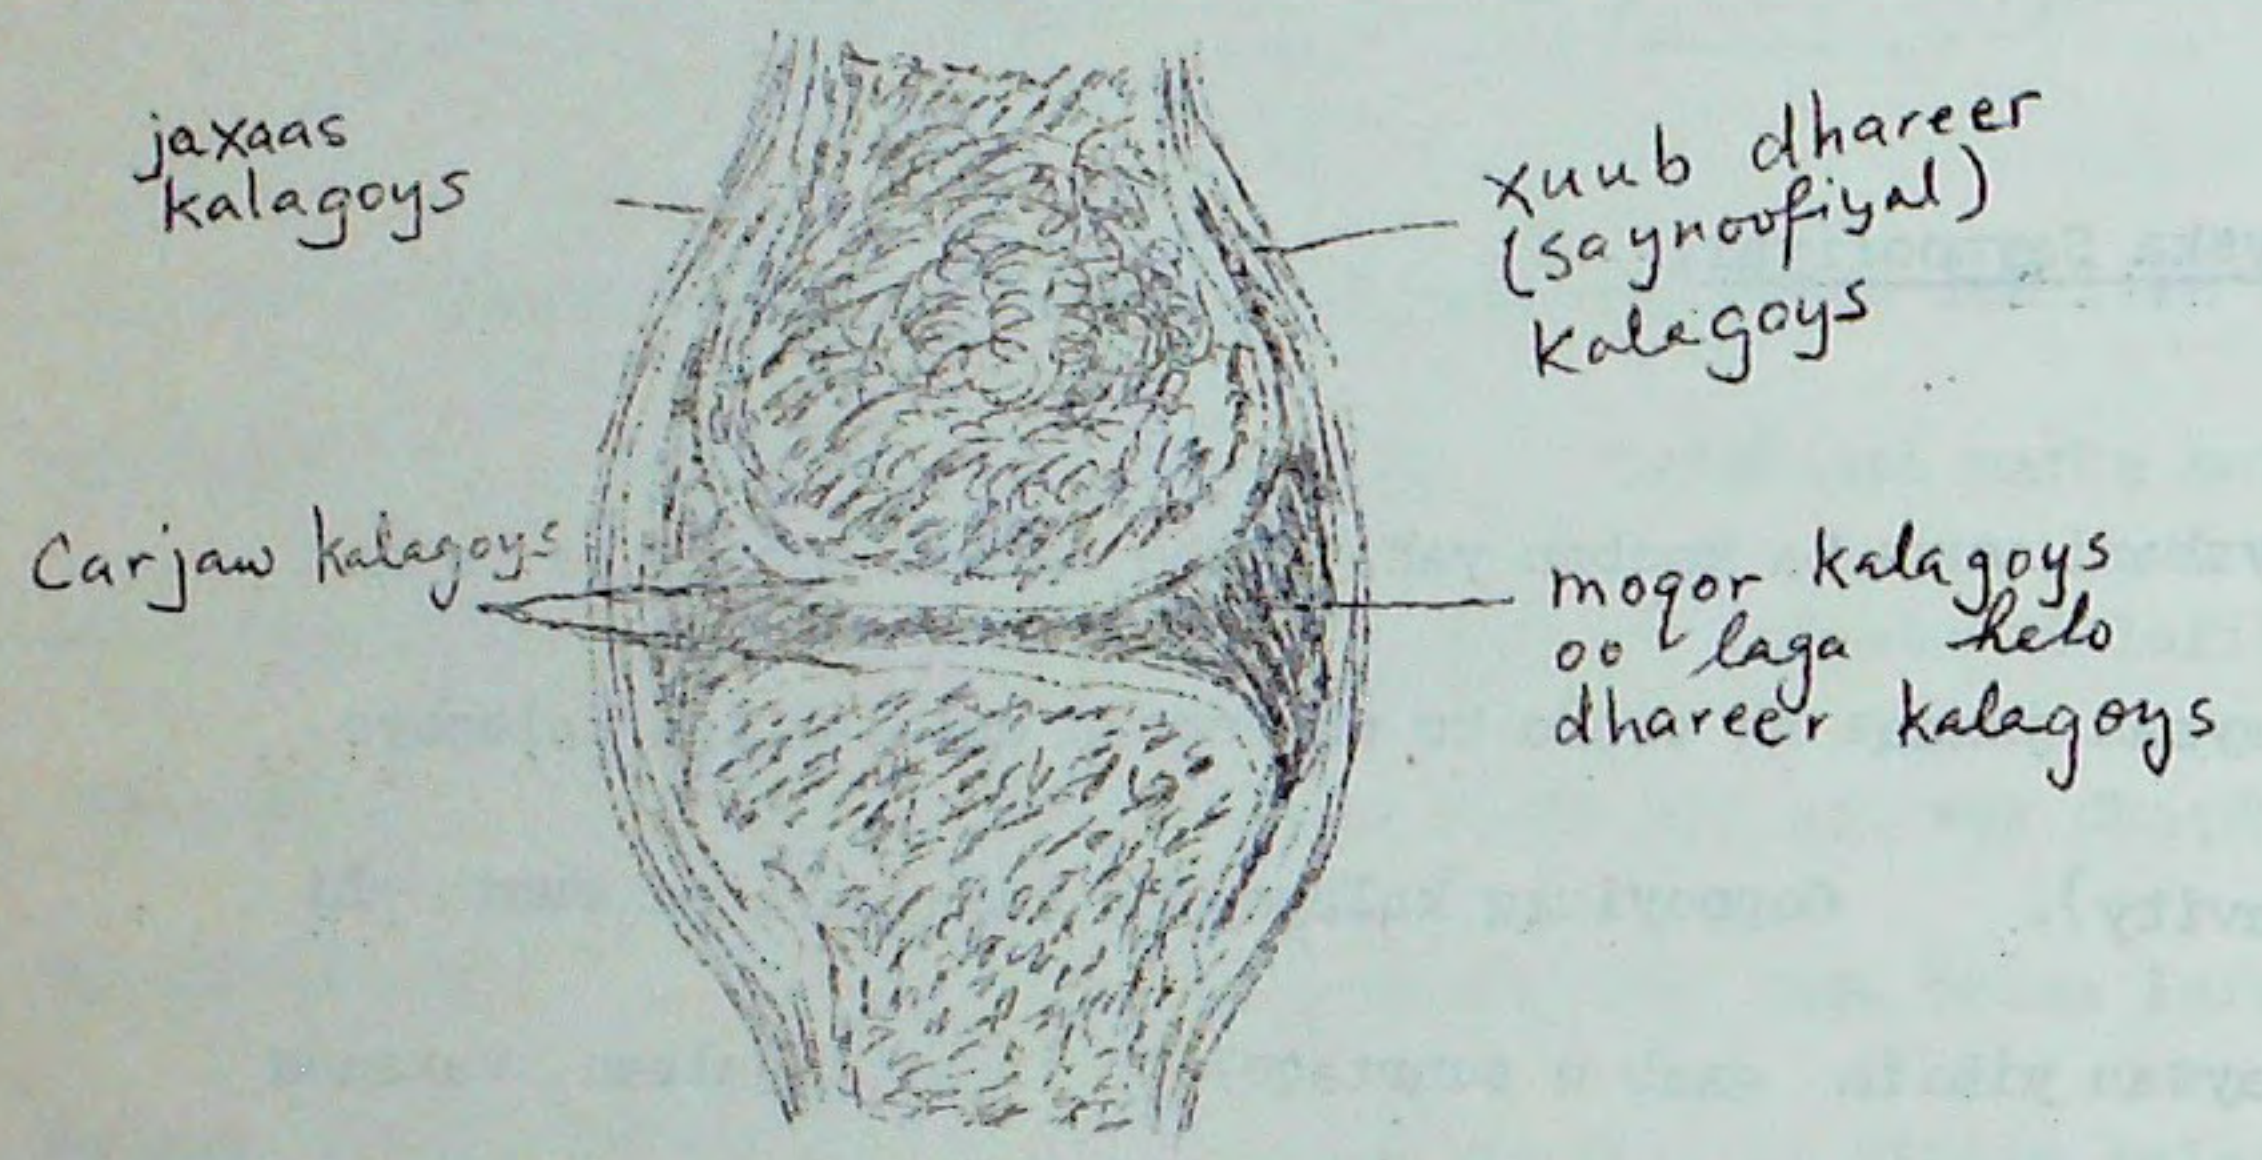 jaxaas
kalagoys
xuub dhareer
(saynoofiyal)
kalagoys
Carjaw kalagoys
moqor kalagoys
oo laga helo
dhareer kalagoys